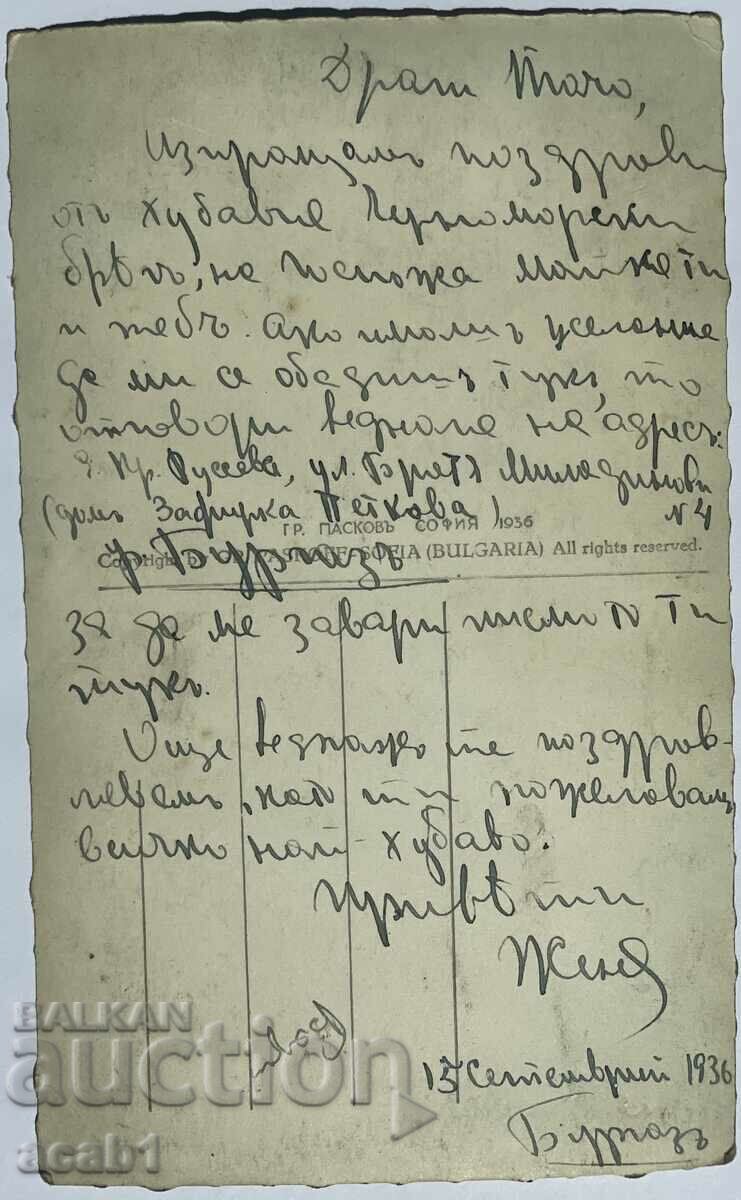 Драги Точо,
Изпращамъ поздрави
отъ хубавия Черноморски
брѣгъ, на Госпожа майка ти
и тебъ. Ако имашъ желание
да ми се обадишъ тукъ, то
отговори веднага на адресъ:
Пр. Русева, ул. Братя Миладинови
(домъ Зафирка Петкова) № 4
ГР. ПАСКОВЪ СОФИЯ 1936
Copyright by SOFIA (BULGARIA) All rights reserved.
гр. Бургазъ
за да ме завари писмото ти
тукъ.
Още веднажъ те поздрав-
лявамъ, като ти пожелавамъ
всичко най-хубаво.
Привѣти
Женя
15 Септемврий 1936
Бургазъ
BALKAN
auction
acab1